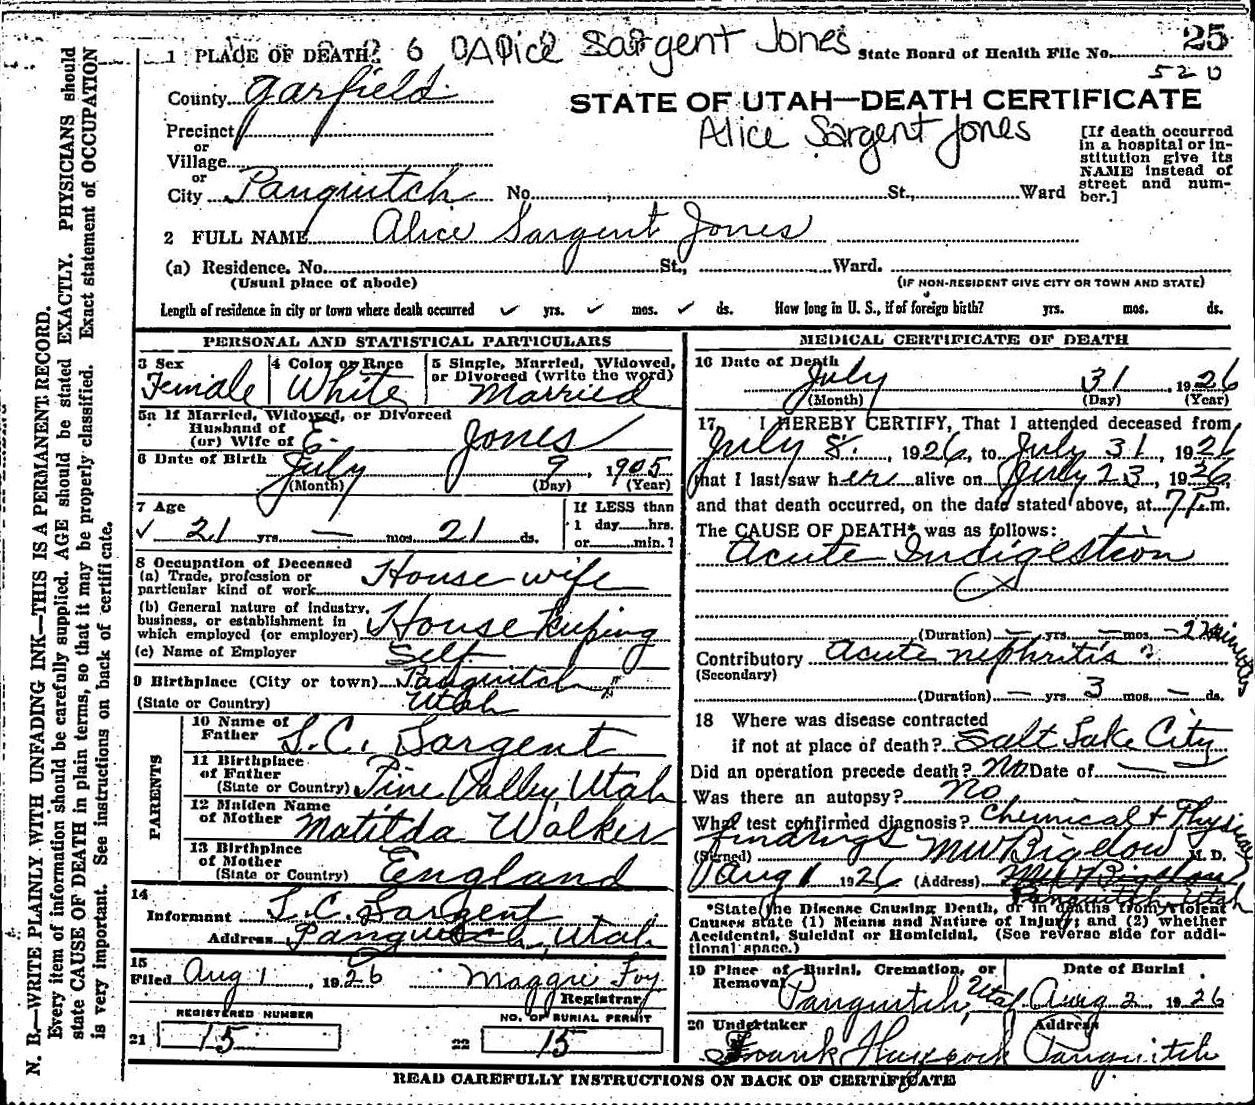 1 PLACE OF DEATH 2 6 Alice Sargent Jones State Board of Health File No. 25
520
County Garfield
STATE OF UTAH—DEATH CERTIFICATE
Alice Sargent Jones
Precinct
or
Village
or
City Panguitch No. St., Ward
[If death occurred
in a hospital or in-
stitution give its
NAME instead of
street and num-
ber.]
2 FULL NAME Alice Sargent Jones
(a) Residence. No. St., Ward.
(Usual place of abode) (IF NON-RESIDENT GIVE CITY OR TOWN AND STATE)
Length of residence in city or town where death occurred ✓ yrs. ✓ mos. ✓ ds. How long in U. S., if of foreign birth? yrs. mos. ds.
PERSONAL AND STATISTICAL PARTICULARS
3 Sex Female
4 Color or Race White
5 Single, Married, Widowed,
or Divorced (write the word)
Married
5a If Married, Widowed, or Divorced
Husband of
(or) Wife of E. Jones
6 Date of Birth July 9, 1905
(Month) (Day) (Year)
7 Age
✓ 21 yrs. — mos. 21 ds.
If LESS than
1 day hrs.
or min.?
8 Occupation of Deceased
(a) Trade, profession or
particular kind of work House wife
(b) General nature of industry,
business, or establishment in
which employed (or employer) House Keeping
(c) Name of Employer Self
9 Birthplace (City or town) Panguitch
(State or Country) Utah
PARENTS
10 Name of
Father S.C. Sargent
11 Birthplace
of Father
(State or Country) Pine Valley, Utah
12 Maiden Name
of Mother Matilda Walker
13 Birthplace
of Mother
(State or Country) England
14
Informant S.C. Sargent
Address Panguitch, Utah
15
Filed Aug 1, 1926 Maggie Foy
Registrar
REGISTERED NUMBER NO. OF BURIAL PERMIT
21 15 22 15
MEDICAL CERTIFICATE OF DEATH
16 Date of Death
July 31, 1926
(Month) (Day) (Year)
17 I HEREBY CERTIFY, That I attended deceased from
July 8, 1926, to July 31, 1926
that I last saw her alive on July 23, 1926,
and that death occurred, on the date stated above, at 7 P.m.
The CAUSE OF DEATH* was as follows:
Acute Indigestion
(Duration) — yrs. — mos. minutes
Contributory Acute nephritis ?
(Secondary)
(Duration) — yrs. 3 mos. — ds.
18 Where was disease contracted
if not at place of death? Salt Lake City
Did an operation precede death? No Date of —
Was there an autopsy? No
What test confirmed diagnosis? Chemical + Physical
findings
(Signed) MW Bigelow M. D.
Aug 1 1926 (Address)
Panguitch Utah
*State the Disease Causing Death, or in deaths from Violent
Causes state (1) Means and Nature of Injury; and (2) whether
Accidental, Suicidal or Homicidal. (See reverse side for addi-
tional space.)
19 Place of Burial, Cremation, or
Removal Panguitch, Utah
Date of Burial
Aug 2, 1926
20 Undertaker Address
Frank Haycock Panguitch
READ CAREFULLY INSTRUCTIONS ON BACK OF CERTIFICATE
N. B.—WRITE PLAINLY WITH UNFADING INK—THIS IS A PERMANENT RECORD.
Every item of information should be carefully supplied. AGE should be stated EXACTLY. PHYSICIANS should
state CAUSE OF DEATH in plain terms, so that it may be properly classified. Exact statement of OCCUPATION
is very important. See instructions on back of certificate.